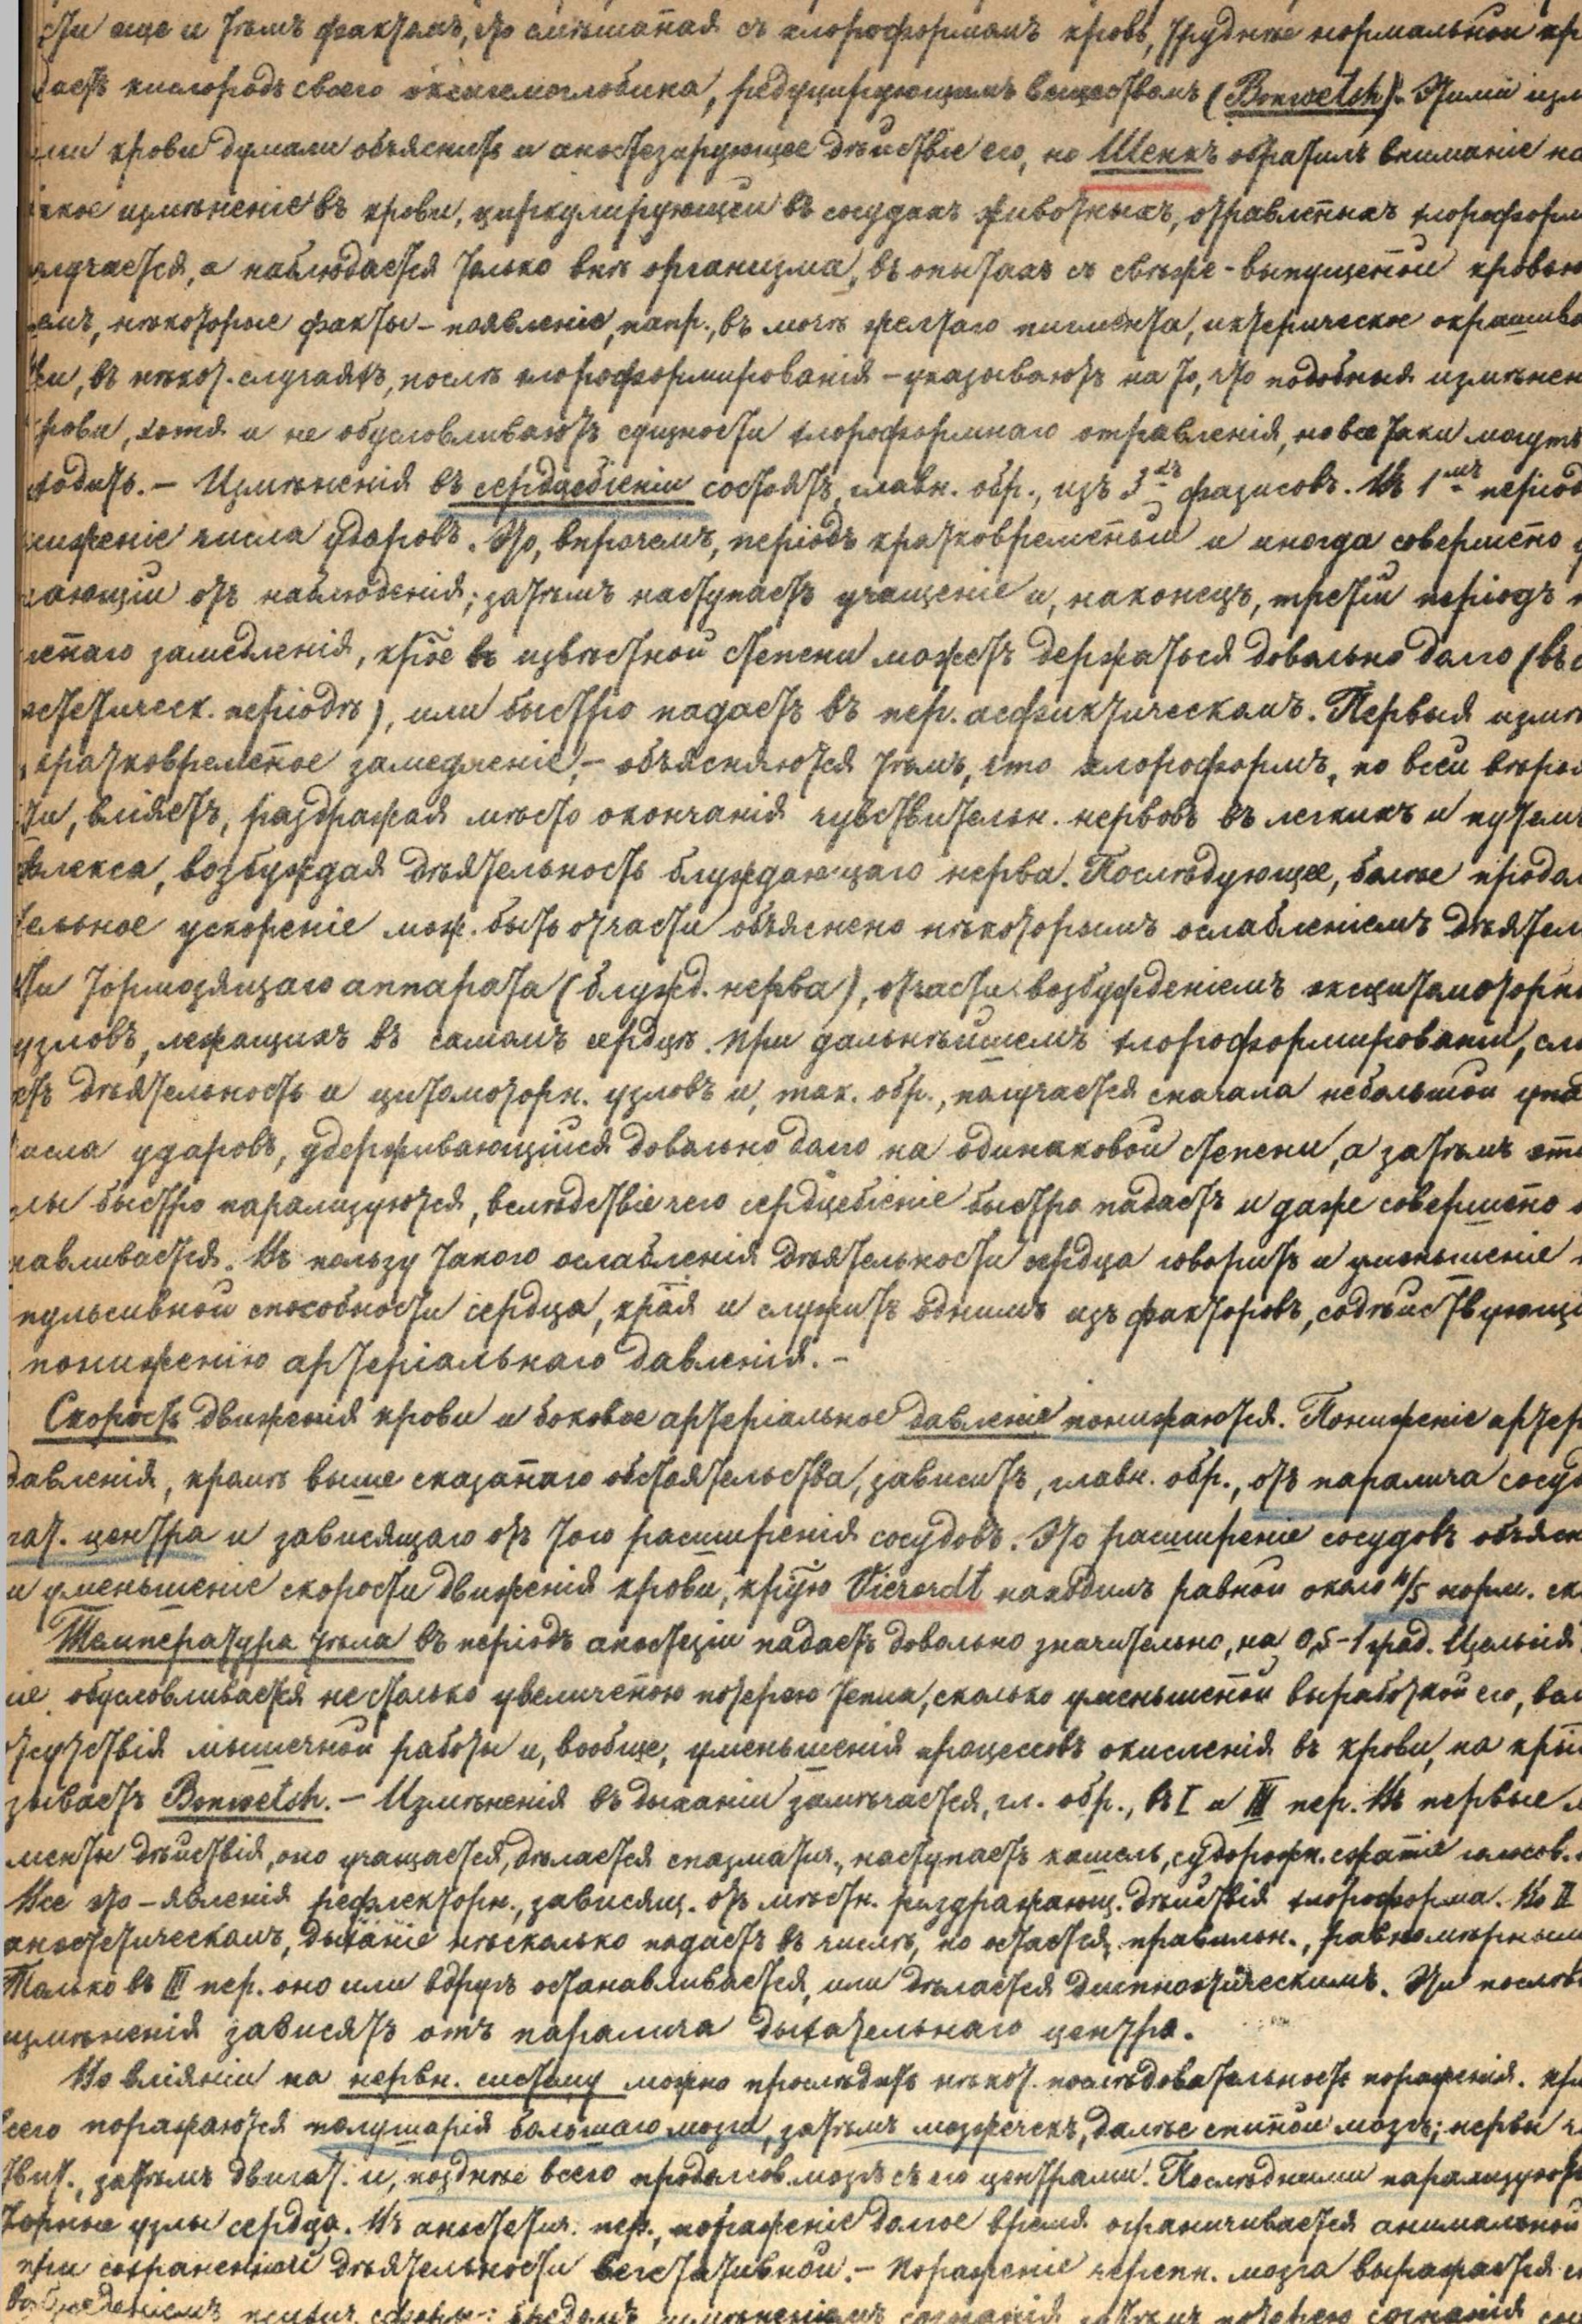 сти еще и тѣмъ фактомъ, что смѣшанная съ хлороформомъ кровь, труднѣе нормальной кр
даетъ кислородъ своего оксигемоглобина, редуцирующимъ веществамъ (Bonwetsch). Этими изм
ми крови думали объяснить и анэстезирующее дѣйствіе его, но Шенкъ обратилъ вниманіе на
кое измѣненіе въ крови, циркулирующей въ сосудахъ животныхъ, отравленныхъ хлороформ
лучается, а наблюдается только внѣ организма, въ опытахъ съ свѣже-выпущенной кровью
емъ, нѣкоторые факты – появленіе, напр., въ мочѣ желтаго пигмента, иктерическое окрашива
жи, въ нѣкот. случаяхъ, послѣ хлороформированія – указываютъ на то, что подобныя измѣнен
рови, хотя и не обусловливаютъ сущности хлороформнаго отравленія, но все таки могутъ
ходить. – Измѣненія въ сердцебіеніи состоятъ, главн. обр., изъ 3хъ фазисовъ. Въ 1мъ період
ниженіе числа ударовъ. Это, впрочемъ, періодъ кратковременный и иногда совершенно у
зающій отъ наблюденія; затѣмъ наступаетъ учащеніе и, наконецъ, третій періодъ п
леннаго замедленія, крое въ извѣстной степени можетъ держаться довольно долго (въ
эстетическ. періодѣ), или быстро падаетъ въ пер. асфиктическомъ. Первыя измѣ
, кратковременное замедленіе, – объясняются тѣмъ, что хлороформъ, по всей вѣроя
ти, вліяетъ, раздражая мѣсто окончанія чувствительн. нервовъ въ легкихъ и путемъ
флекса, возбуждая дѣятельность блуждающаго нерва. Послѣдующее, болѣе продол
тельное ускореніе мож. быть отчасти объяснено нѣкоторымъ ослабленіемъ дѣятел
сти тормозящаго аппарата (блужд. нерва), отчасти возбужденіемъ эксцитомоторн
узловъ, лежащихъ въ самомъ сердцѣ. При дальнѣйшемъ хлороформированіи, сл
етъ дѣятельность и цитомоторн. узловъ и, так. обр., получается сначала небольшой упад
числа ударовъ, удерживающійся довольно долго на одинаковой степени, а затѣмъ эти
лы быстро парализуются, вслѣдствіе чего сердцебіеніе быстро падаетъ и даже совершенно о
навливается. Въ пользу такого ослабленія дѣятельности сердца говоритъ и уменьшеніе
пульсивной способности сердца, края и служитъ однимъ изъ факторовъ, содѣйствующи
пониженію артеріальнаго давленія. –
Скорость движенія крови и боковое артеріальное давленіе понижаются. Пониженіе артер
давленія, кромѣ выше сказаннаго обстоятельства, зависитъ, главн. обр., отъ паралича сосуд
гат. центра и зависящаго отъ того расширенія сосудовъ. Это расширеніе сосудовъ объясн
и уменьшеніе скорости движенія крови, крую Vierordt находилъ равной около 4/5 норм. ск
Температура тѣла въ періодъ анестезіи падаетъ довольно значительно, на 0,5–1 град. Цельсія.
іе обусловливается не столько увеличенною потерею тепла, сколько уменьшенной выработкой его, вс
отсутствія мышечной работы и, вообще, уменьшенія процессовъ окисленія въ крови, на кры
зываетъ Bonwetsch. – Измѣненія въ дыханіи замѣчается, гл. обр., въ I и III пер. Въ первые м
менты дѣйствія, оно учащается, дѣлается спазматич., наступаетъ кашель, судорожн. сжатіе голосов.
Все это – явленія рефлекторн., зависящ. отъ мѣстн. раздражающ. дѣйствія хлороформа. Во II
анестетическомъ, дыханіе нѣсколько падаетъ въ числѣ, но остается правильн., равномѣрным
Только въ III пер. оно или вдругъ останавливается, или дѣлается диспноэтическимъ. Эти послѣд
измѣненія зависятъ отъ паралича дыхательнаго центра.
Во вліяніи на нервн. систему можно прослѣдить нѣкот. послѣдовательность пораженія.
всего поражаются полушарія большаго мозга, затѣмъ мозжечекъ, далѣе спинной мозгъ; нервы ч
ствит., затѣмъ двигат. и, позднѣе всего продолгов. мозгъ съ его центрами. Послѣдними парализуют
торные узлы сердца. Въ анестетич. пер., пораженіе долгое время ограничивается анимальной
при сохраненной дѣятельности вегетативной. – Пораженіе черепн. мозга выражается